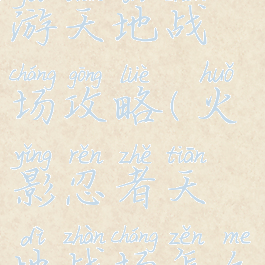 游天地战
chǎng gōng lüè huǒ
场攻略(火
yǐng rěn zhě tiān
影忍者天
dì zhàn chǎng zěn me
地战场怎么